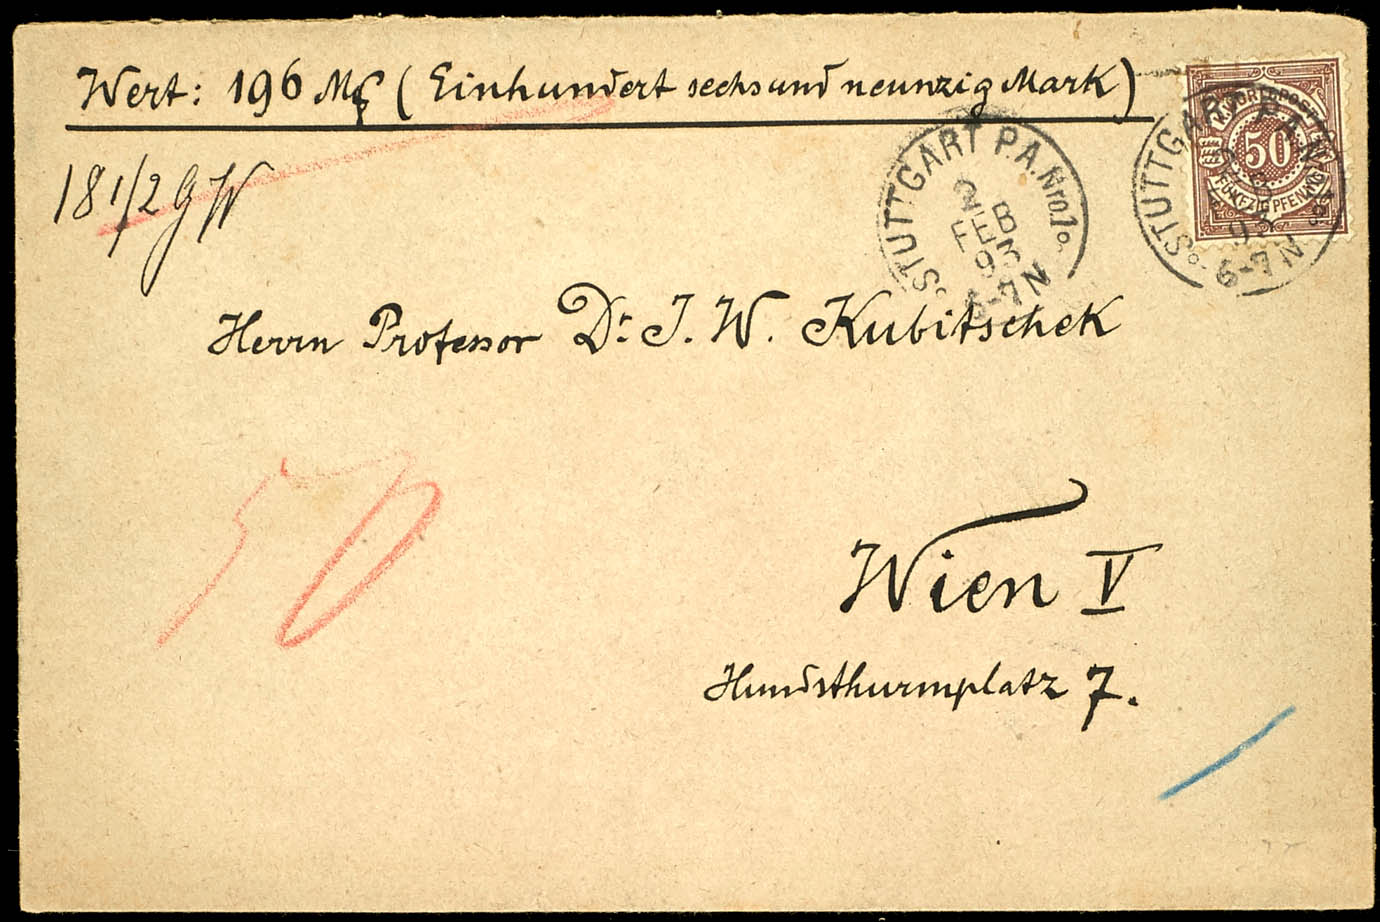 Wert: 196 Mk (Einhundert sechsund neunzig Mark)
18 1/2 G
Herrn Professor Dr. J. W. Kubitschek
Wien V
Hundsthurmplatz 7.
50
STUTTGART P.A. Nro. 1
2
FEB
93
6-7 N
STUTTGART P.A. Nro. 1
FEB
93
6-7 N
K. WÜRTT. POST
50
FÜNFZIG PFENNIG